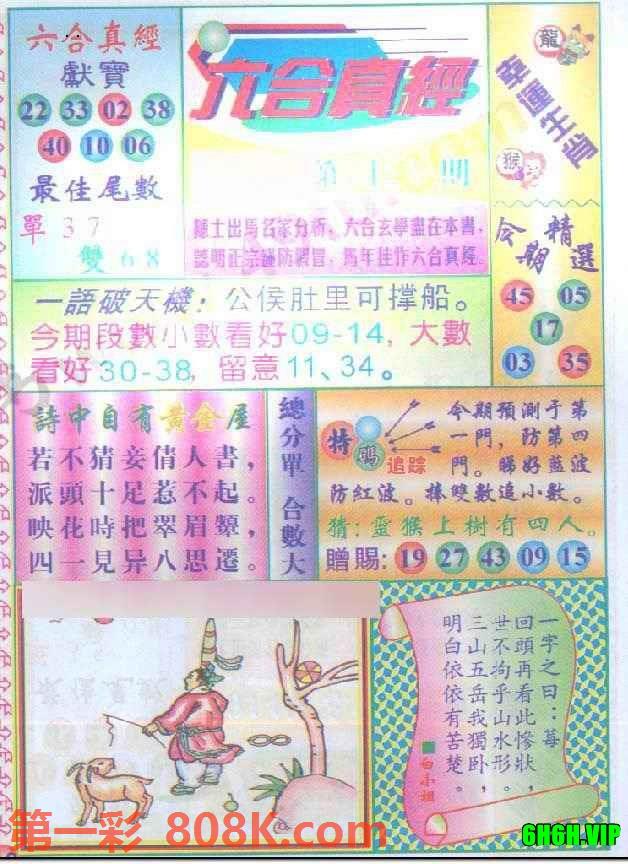 六合真經
獻寶
22 33 02 38
40 10 06
最佳尾數
單 3 7
雙 6 8
六合真經
第十 期
隱士出馬名家分析，六合玄學盡在本書，
認明正宗謹防假冒，馬年佳作六合真經。
龍
幸運生肖
猴
今期精選
45 05
17
03 35
一語破天機：公侯肚里可撐船。
今期段數小數看好09-14，大數
看好30-38，留意11、34。
詩中自有黃金屋
若不猜妾倩人書，
派頭十足惹不起。
映花時把翠眉顰，
四一見异八思遷。
總分單 合數大
特碼追踪
今期預測于第
一門，防第四
門。睇好藍波
防紅波。捧雙數追小數。
猜：靈猴上樹有四人。
贈賜：19 27 43 09 15
一字之曰：莓
回頭再看此慘狀，
世不拘乎山水形，
三山五岳我獨卧，
明白依依有苦楚。
白小姐
第一彩 808K.com
6H6H.VIP